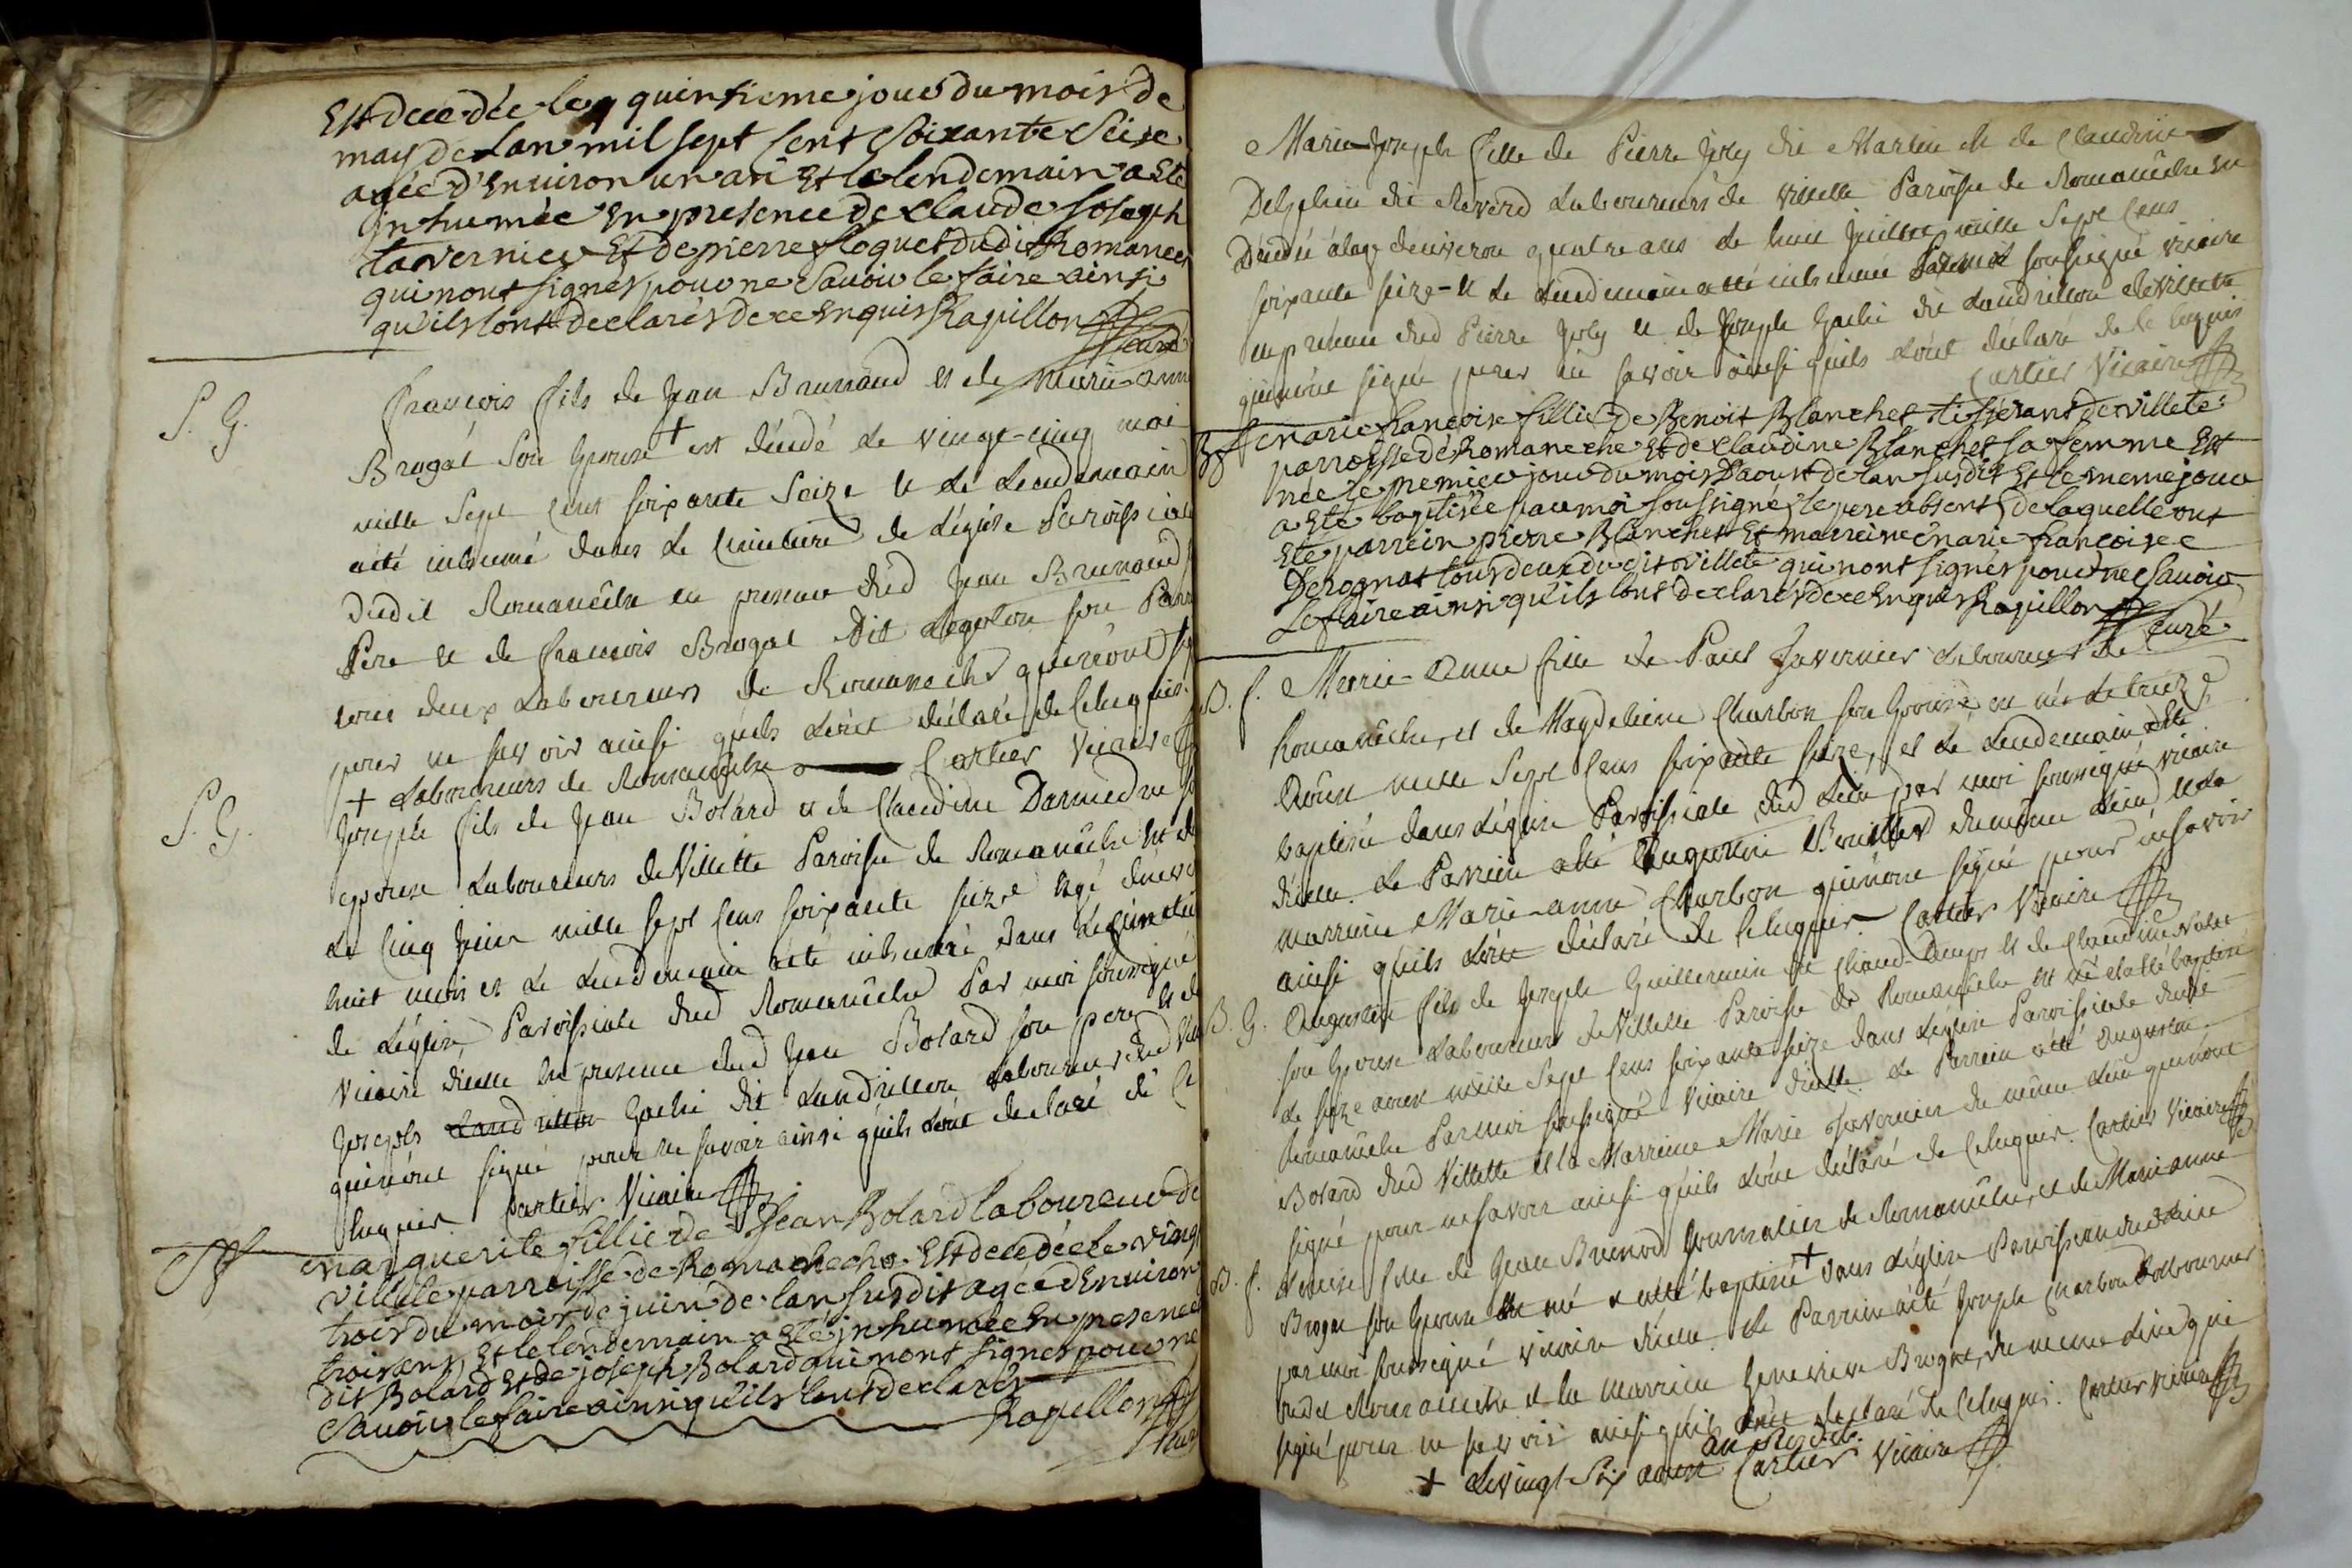 Est decedée le quinsieme jour du mois de
may de Lan mil sept Cent Soixante Seise
agéé d'Environ un an Et le lendemain a Eté
inhumée En presence de Claude Joseph
tavernier Et de pierre floquet dudit Romanec
qui nont signés pour ne Savoir le faire ainsi
qu'ils lont declarés de ce Enquis Rapillon
Curé
S. G. François fils de Jean Brunaud et de Marie-anne
Brogat Son Epouse + est décédé Le vingt-cinq mai
mille Sept Cent soixante Seize et Le Lendemain
a été inhumé dans Le Cimetiere de Léglise Paroissiale
dudit Romanêche en presence dud Jean Brunaud
Pere et de François Brogat dit son
tous deux Laboureurs de Romaneche qui n'ont
pour ne savoir ainsi quils L'ont déclaré de Ce Enquis
+ Laboureurs de Romanêche Cartier Vicaire
S. G. Joseph fils de Jean Bolard et de Claudine
epouse Laboureurs de Villette Paroisse de Romanêche est
Le Cinq Juin mille sept Cens soixante seize agé
huit mois et Le Lendemain a été inhumé dans Le
de Léglise Paroissiale dud Romanêche Par moi soussigné
Vicaire d'icelle en presence dud Jean Bolard son pere et de
Joseph Gachi dit Landrillon Laboureur dud
qui n'ont signé pour ne savoir ainsi quils L'ont declaré de Ce
Enquis Cartier Vicaire
Marguerite fillie de Jean Bolard laboureur de
villete parroisse de Romaneche Est decedée le vingt
trois du mois de juin de lan susdit agée d'Environ
trois ans Et le lendemain a Eté inhumée En presence
dit Bolard Et de joseph Bolard qui nont signés pour ne
Savoir le faire ainsi qu'ils lont declarés
Rapillon
Curé
Marie-Joseph fille de Pierre Joly dit Martin et de Claudine
Delphin dit Reverd Laboureurs de villette Paroisse de Romanêche est
Décédée àlage denviron quatre ans Le huit Juillet mille Sept Cens
soixante seize - et Le Lendemain a été inhumée Par moi soussigné vicaire
en présence dud Pierre Joly et de Joseph Gachi dit Landrillon de Villette
qui n'ont signé pour ne savoir ainsi quils L'ont déclaré de Ce Enquis
Cartier Vicaire
Bf Marie françoise fillie de Benoit Blanchet tisserant de villete
parroisse de Romaneche Et de Claudine Blanchet sa femme Est
née le premier jour du mois D'aoust de lan susdit Et le meme jour
a Eté baptisée par moi soussigné, le pere absent, de laquelle ont
Eté parrein pierre Blanchet Et marreine marie françoise
Derognat tous deux dudit villete qui nont signés pour ne Savoir
Le faire ainsi qu'ils lont declarés de ce Enquis Rapillon
Curé
B. f. Marie-Anne fille de Paul Tavernier Laboureur de
Romanêche, et de Magdeleine Charbon son Epouse est née Le treize
Aoust mille Sept Cens soixante seize, et Le Lendemain a été
baptisée dans Léglise Paroissiale dud Lieu par moi soussigné vicaire
d'icelle. Le Parrein a été Augustin du même Lieu et La
marreine Marie-anne Charbon qui n'ont signé pour ne savoir
ainsi quils L'ont déclaré de Ce Enquis. Cartier Vicaire
B. G. Augustin fils de Joseph Guillermin dit Chaud-Temps et de Claudine
son Epouse Laboureurs de Villette Paroisse de Romanêche est né et a été baptisé
Le seize aoust mille Sept Cens soixante seize dans Léglise Paroissiale dudit
Romanêche Par moi soussigné Vicaire d'icelle. Le Parrein a été Augustin
Bolard dud Villette et la Marreine Marie Tavernier du même Lieu qui n'ont
signé pour ne savoir ainsi quils L'ont déclaré de Ce Enquis. Cartier Vicaire
B. f. Louise fille de Jean Brunod Journalier de Romanêche, et de Marianne
Brogat son Epouse est née et a été baptisée + dans Léglise Paroissiale dud Lieu
par moi soussigné vicaire d'icelle. Le Parrein a été Joseph Charbon Laboureur
dudit Romaneche et la Marreine Genevieve Brogat, du meme Lieu qui
signé pour ne savoir ainsi quils L'ont declaré de Ce Enquis. Cartier Vicaire
an susdit.
+ Le vingt-Six aoust Cartier Vicaire